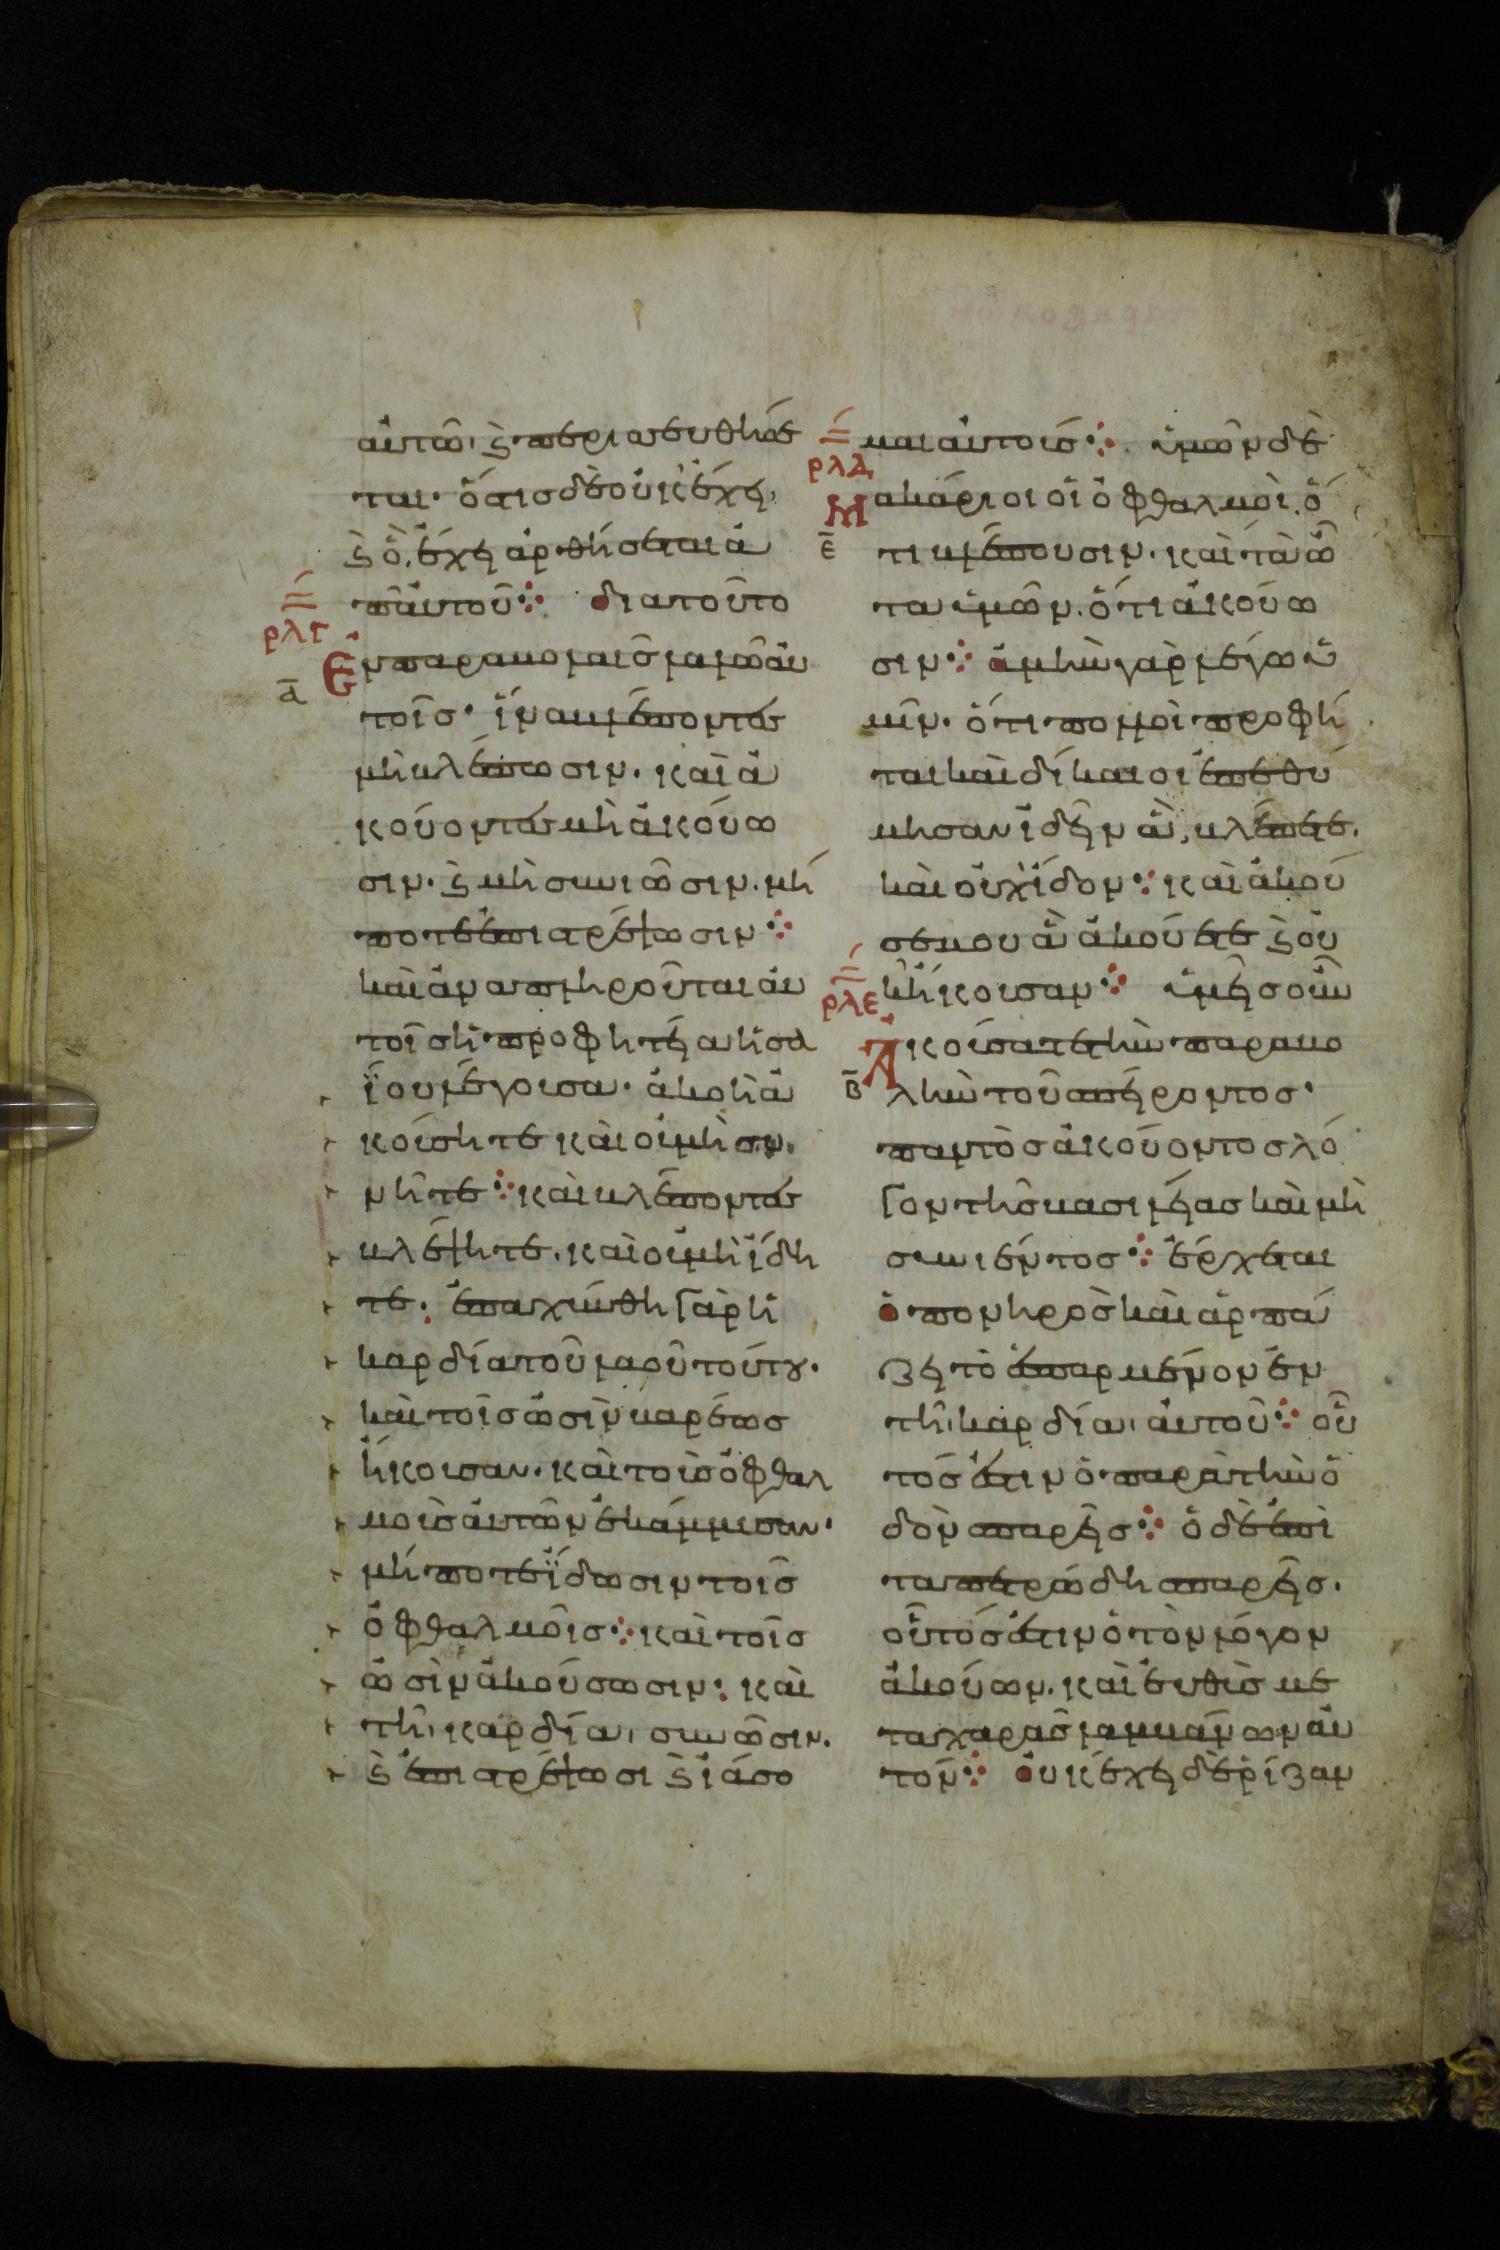 αὐτῶ, ϗ περισσευθήσε
ται· ὅστις δὲ οὐκ ἔχει,
ϗ ὃ, ἔχει ἀρθήσεται ἀ
π αὐτοῦ⁘ διατοῦτο
ρλγ
α
Ἐν παραβολαῖς λαλῶ αὐ
τοῖς· ἵνα βλέποντες
μὴ βλέπωσιν· καὶ ἀ
κούοντες μὴ ἀκούω
σιν· ϗ μὴ συνιῶσιν· μή
ποτε ἐπιστρέψωσιν⁘
καὶ ἀναπληροῦται αὐ
τοῖς ἡ προφητεία ἡσα
ΐου λέγουσα· ἀκοὴ ἀ
κούσητε καὶ οὐ μὴ συ
νῆτε⁘ καὶ βλέποντες
βλέψητε· καὶ οὐ μὴ ἴδη
τε· ἐπαχύνθη γὰρ ἡ
καρδία τοῦ λαοῦ τούτου·
καὶ τοῖς ὠσὶν βαρέως
ἤκουσαν· καὶ τοὺς ὀφθαλ
μοὺς αὐτῶν ἐκάμμυσαν·
μήποτε ἴδωσιν τοῖς
ὀφθαλμοῖς⁘ καὶ τοῖς
ὠσὶν ἀκούσωσιν· καὶ
τῆ, καρδία, συνῶσιν.
ϗ ἐπιστρέψωσι ϗ ἰάσο
μαι αὐτοις⁘ ὑμῶν δὲ
ρλδ
ε
Μακάριοι οἱ ὀφθαλμοὶ, ὅ
τι βλέπουσιν· καὶ τὰ ὦ
τα ὑμῶν· ὅτι ἀκούω
σιν⁘ ἀμὴν γὰρ λέγω ὑ
μῖν· ὅτι πολλοὶ προφῆ
ται καὶ δίκαιοι ἐπεθύ
μησαν ἰδεῖν ἃ, βλέπετε.
καὶ οὐχ ἴδον⁘ καὶ ἀκού
σε μου ἃ ἀκούετε ϗ οὐ
κ ἤκουσαν⁘ ὑμεῖς οὖν
ρλε
β
Ἀκούσατε τὴν παραβο
λὴν τοῦ σπείροντος·
παντὸς ἀκούοντος λό
γον τῆς βασιλείας καὶ μὴ
συνιέντος⁘ ἔρχεται
ὁ πονηρὸς καὶ ἁρπά
ζει τὸ ἐσπαρμένον ἐν
τῆ, καρδία, αὐτοῦ⁘ οὗ
τός ἐστιν ὁ παρὰ τὴν ὁ
δὸν σπαρεῖς⁘ ὁ δὲ ἐπὶ
τα πετρώδη σπαρεῖς.
οὗτός ἐστιν ὁ τὸν λόγον
ἀκούων· καὶ εὐθὺς με
τα χαρᾶς λαμβάνων αὐ
τόν⁘ οὐκ ἔχει δὲ ῥίζαν